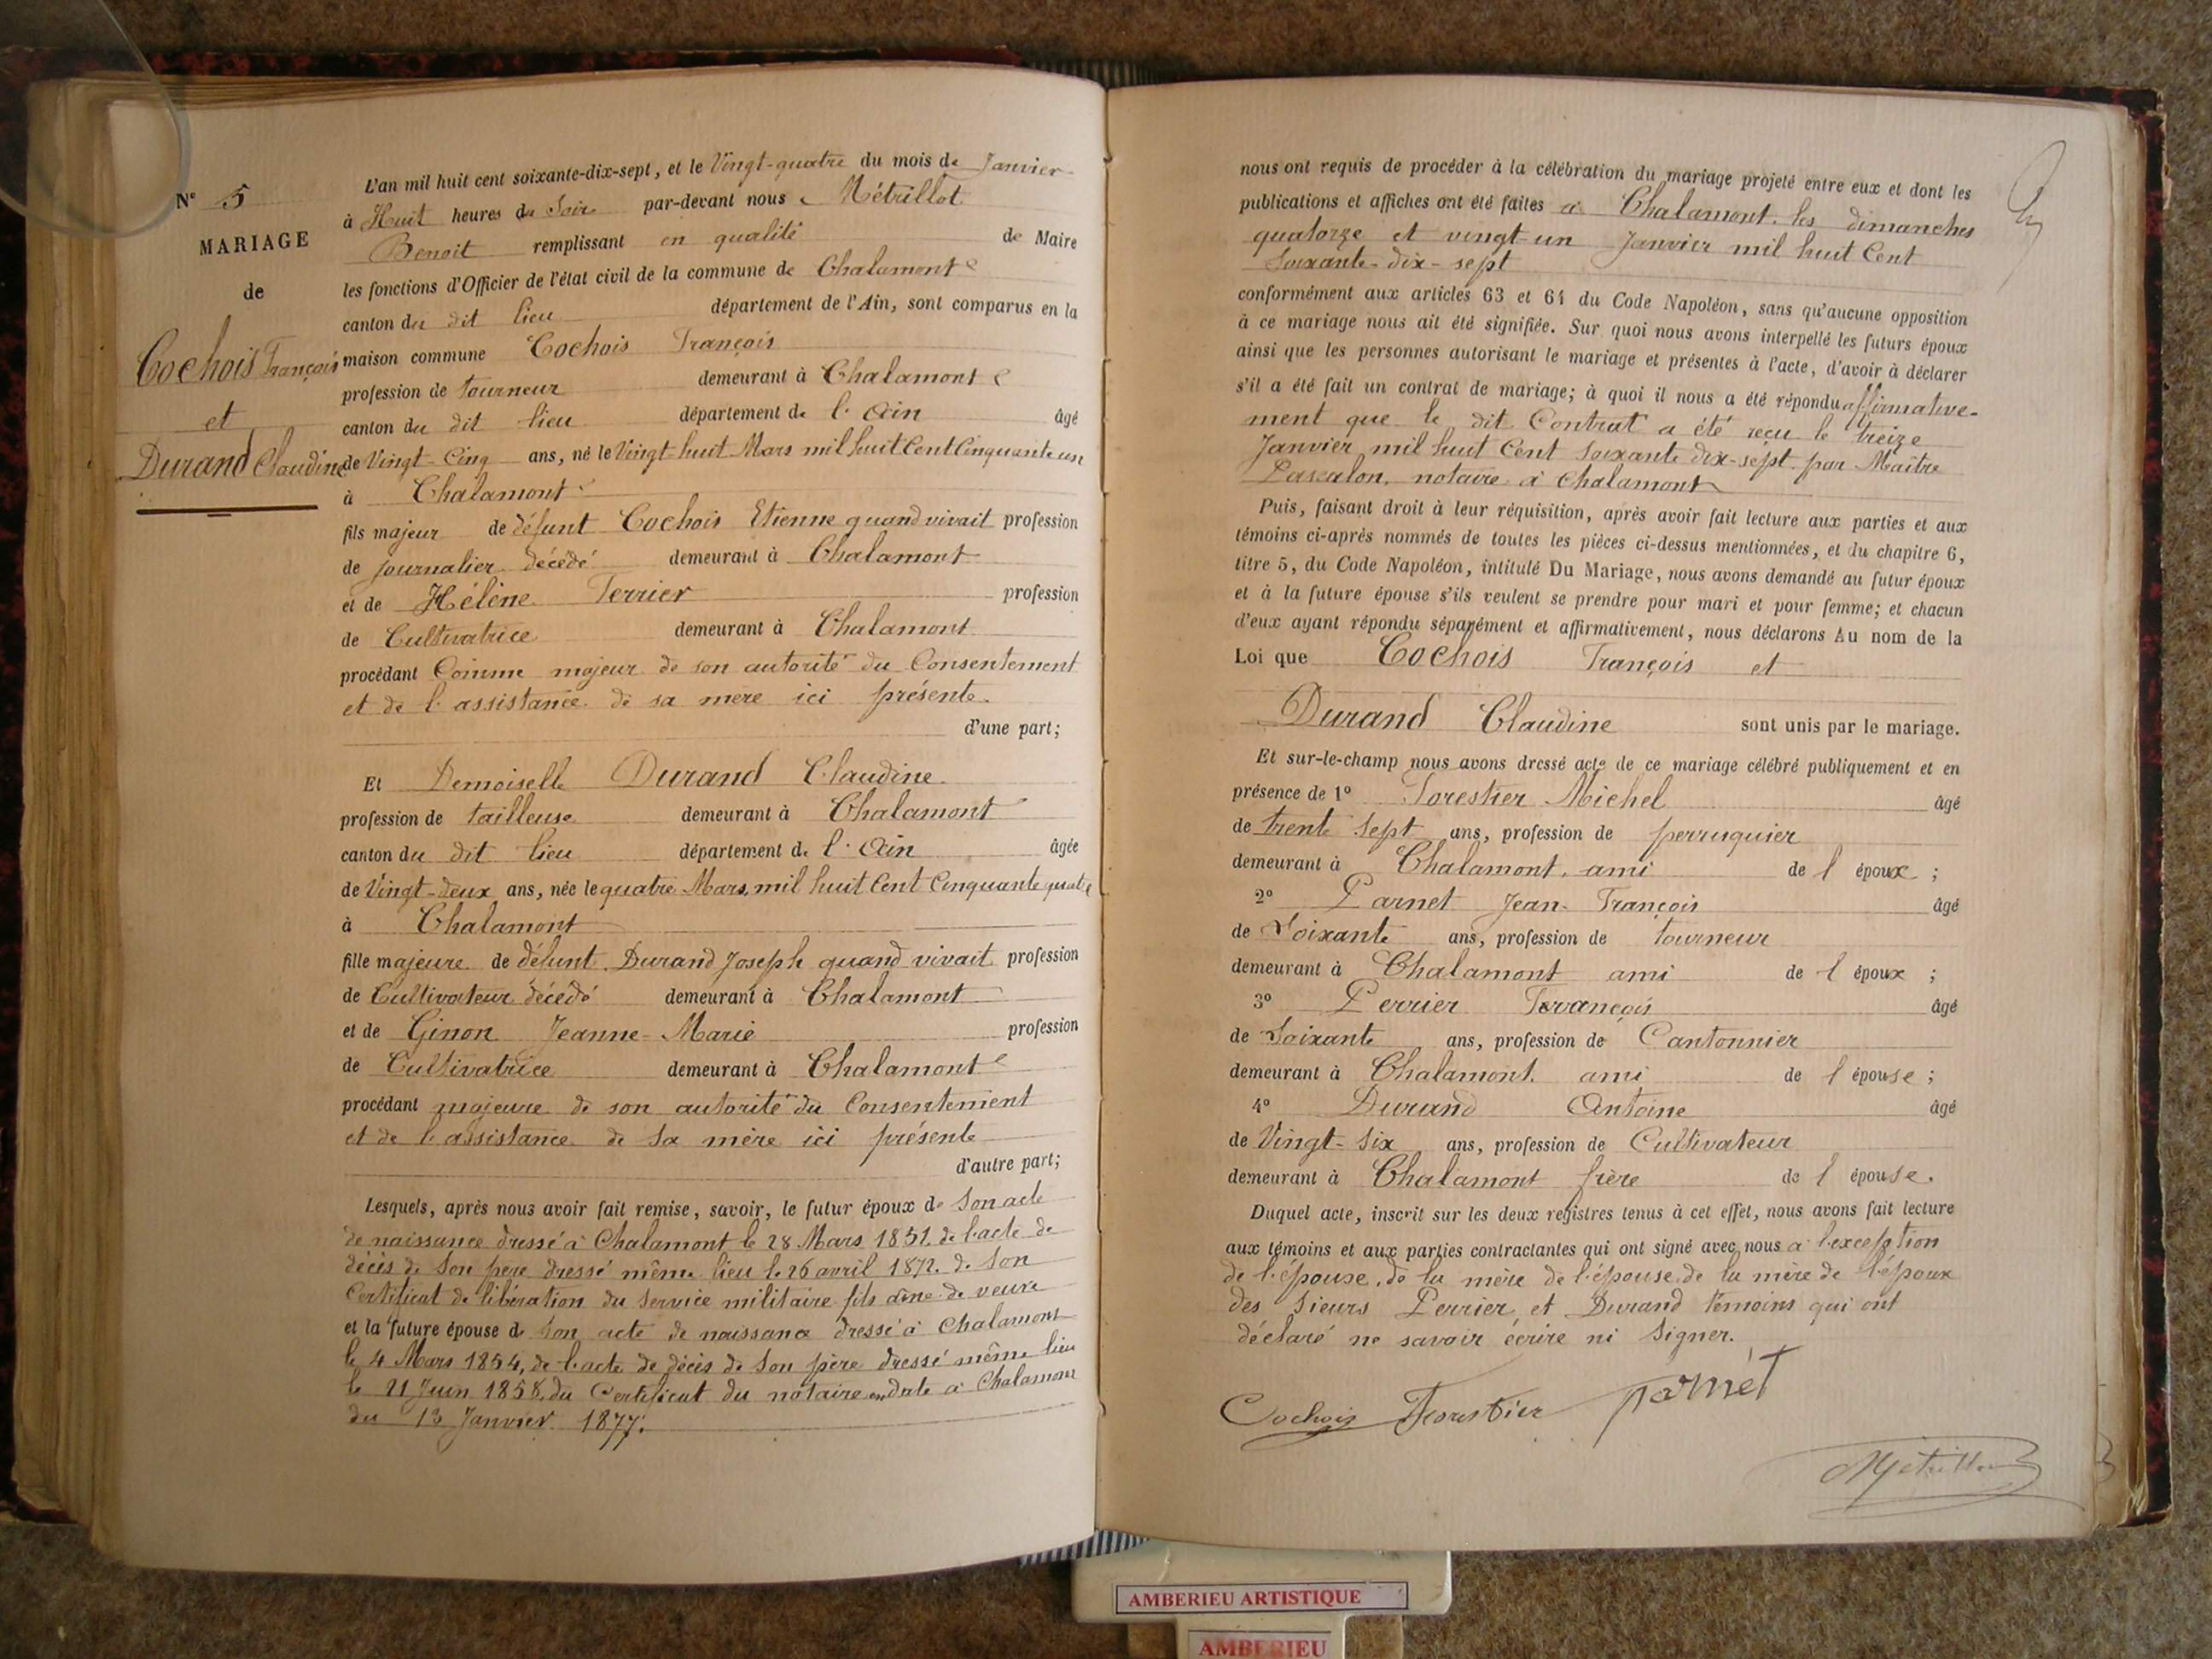 N° 5
MARIAGE
de
Cochois François
et
Durand Claudine
L'an mil huit cent soixante-dix-sept, et le Vingt-quatre du mois de Janvier
à Huit heures du Soir par-devant nous Métrillot
Benoit remplissant en qualité de Maire
les fonctions d'Officier de l'état civil de la commune de Chalamont
canton du dit lieu département de l'Ain, sont comparus en la
maison commune Cochois François
profession de tourneur demeurant à Chalamont
canton du dit lieu département de l'Ain âgé
de Vingt-Cinq ans, né le Vingt-huit Mars mil huit Cent Cinquante un
à Chalamont
fils majeur de défunt Cochois Etienne quand vivait profession
de journalier décédé demeurant à Chalamont
et de Hélène Terrier profession
de Cultivatrice demeurant à Chalamont
procédant Comme majeur de son autorité du Consentement
et de l'assistance de sa mere ici présente
d'une part;
Et Demoiselle Durand Claudine
profession de tailleuse demeurant à Chalamont
canton du dit lieu département de l'Ain âgée
de Vingt-deux ans, née le quatre Mars mil huit Cent Cinquante quatre
à Chalamont
fille majeure de défunt Durand Joseph quand vivait profession
de Cultivateur décédé demeurant à Chalamont
et de Ginon Jeanne-Marie profession
de Cultivatrice demeurant à Chalamont
procédant majeure de son autorité du Consentement
et de l'assistance de sa mère ici présente
d'autre part;
Lesquels, après nous avoir fait remise, savoir, le futur époux de Son acte
de naissance dressé à Chalamont le 28 Mars 1851, de l'acte de
décès de Son père dressé même lieu le 26 avril 1872. de Son
Certificat de libération du Service militaire fils aîné de veuve
et la future épouse de Son acte de naissance dressé à Chalamont
le 4 Mars 1854, de l'acte de décès de Son père dressé même lieu
le 21 Juin 1858, du Certificat du notaire en date à Chalamont
du 13 Janvier 1877.
nous ont requis de procéder à la célébration du mariage projeté entre eux et dont les
publications et affiches ont été faites à Chalamont les dimanches
quatorze et vingt-un Janvier mil huit Cent
Soixante-dix-sept
conformément aux articles 63 et 64 du Code Napoléon, sans qu'aucune opposition
à ce mariage nous ait été signifiée. Sur quoi nous avons interpellé les futurs époux
ainsi que les personnes autorisant le mariage et présentes à l'acte, d'avoir à déclarer
s'il a été fait un contrat de mariage; à quoi il nous a été répondu affirmative-
ment que le dit Contrat a été reçu le treize
Janvier mil huit Cent Soixante dix-sept par Maître
Pascalon, notaire à Chalamont
Puis, faisant droit à leur réquisition, après avoir fait lecture aux parties et aux
témoins ci-après nommés de toutes les pièces ci-dessus mentionnées, et du chapitre 6,
titre 5, du Code Napoléon, intitulé Du Mariage, nous avons demandé au futur époux
et à la future épouse s'ils veulent se prendre pour mari et pour femme; et chacun
d'eux ayant répondu séparément et affirmativement, nous déclarons Au nom de la
Loi que Cochois François et
Durand Claudine sont unis par le mariage.
Et sur-le-champ nous avons dressé acte de ce mariage célébré publiquement et en
présence de 1° Forestier Michel âgé
de trente Sept ans, profession de perruquier
demeurant à Chalamont, ami de l'époux;
2° Parnet Jean-François âgé
de Soixante ans, profession de tourneur
demeurant à Chalamont ami de l'époux;
3° Perrier François âgé
de Soixante ans, profession de Cantonnier
demeurant à Chalamont, ami de l'épouse;
4° Durand Antoine âgé
de Vingt-Six ans, profession de Cultivateur
demeurant à Chalamont frère de l'épouse.
Duquel acte, inscrit sur les deux registres tenus à cet effet, nous avons fait lecture
aux témoins et aux parties contractantes qui ont signé avec nous à l'exception
de l'épouse, de la mère de l'épouse, de la mère de l'époux
des Sieurs Perrier, et Durand témoins qui ont
déclaré ne savoir écrire ni Signer.
Cochois Forestier Parnet
Métrillot
AMBERIEU ARTISTIQUE
AMBERIEU